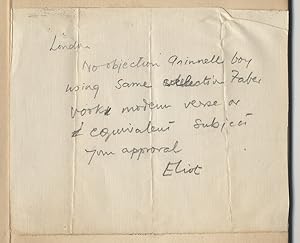 London
No objection Grinnell boy
using same selection Faber
book modern verse or
equivalent subject
your approval
Eliot